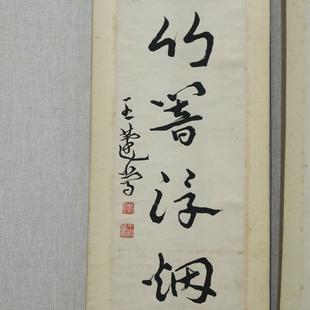 竹浮烟
王蘧常